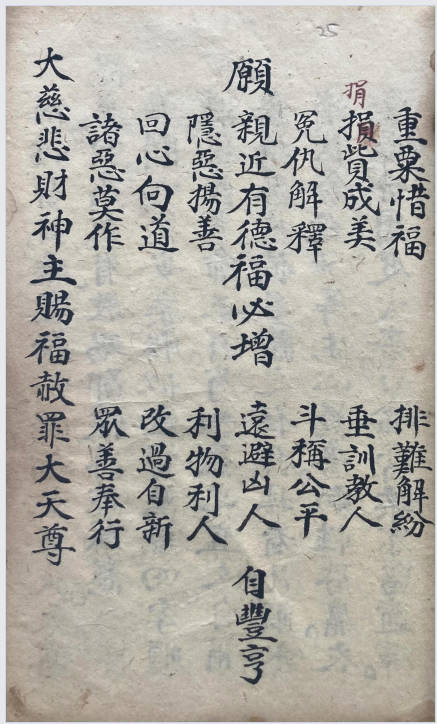 25
重粟惜福 排難解紛
捐
損貲成美 垂訓教人
冤仇解釋 斗稱公平
願親近有德福必增 遠避凶人自豐亨
隱惡揚善 利物利人
回心向道 改過自新
諸惡莫作 眾善奉行
大慈悲財神主賜福赦罪大天尊